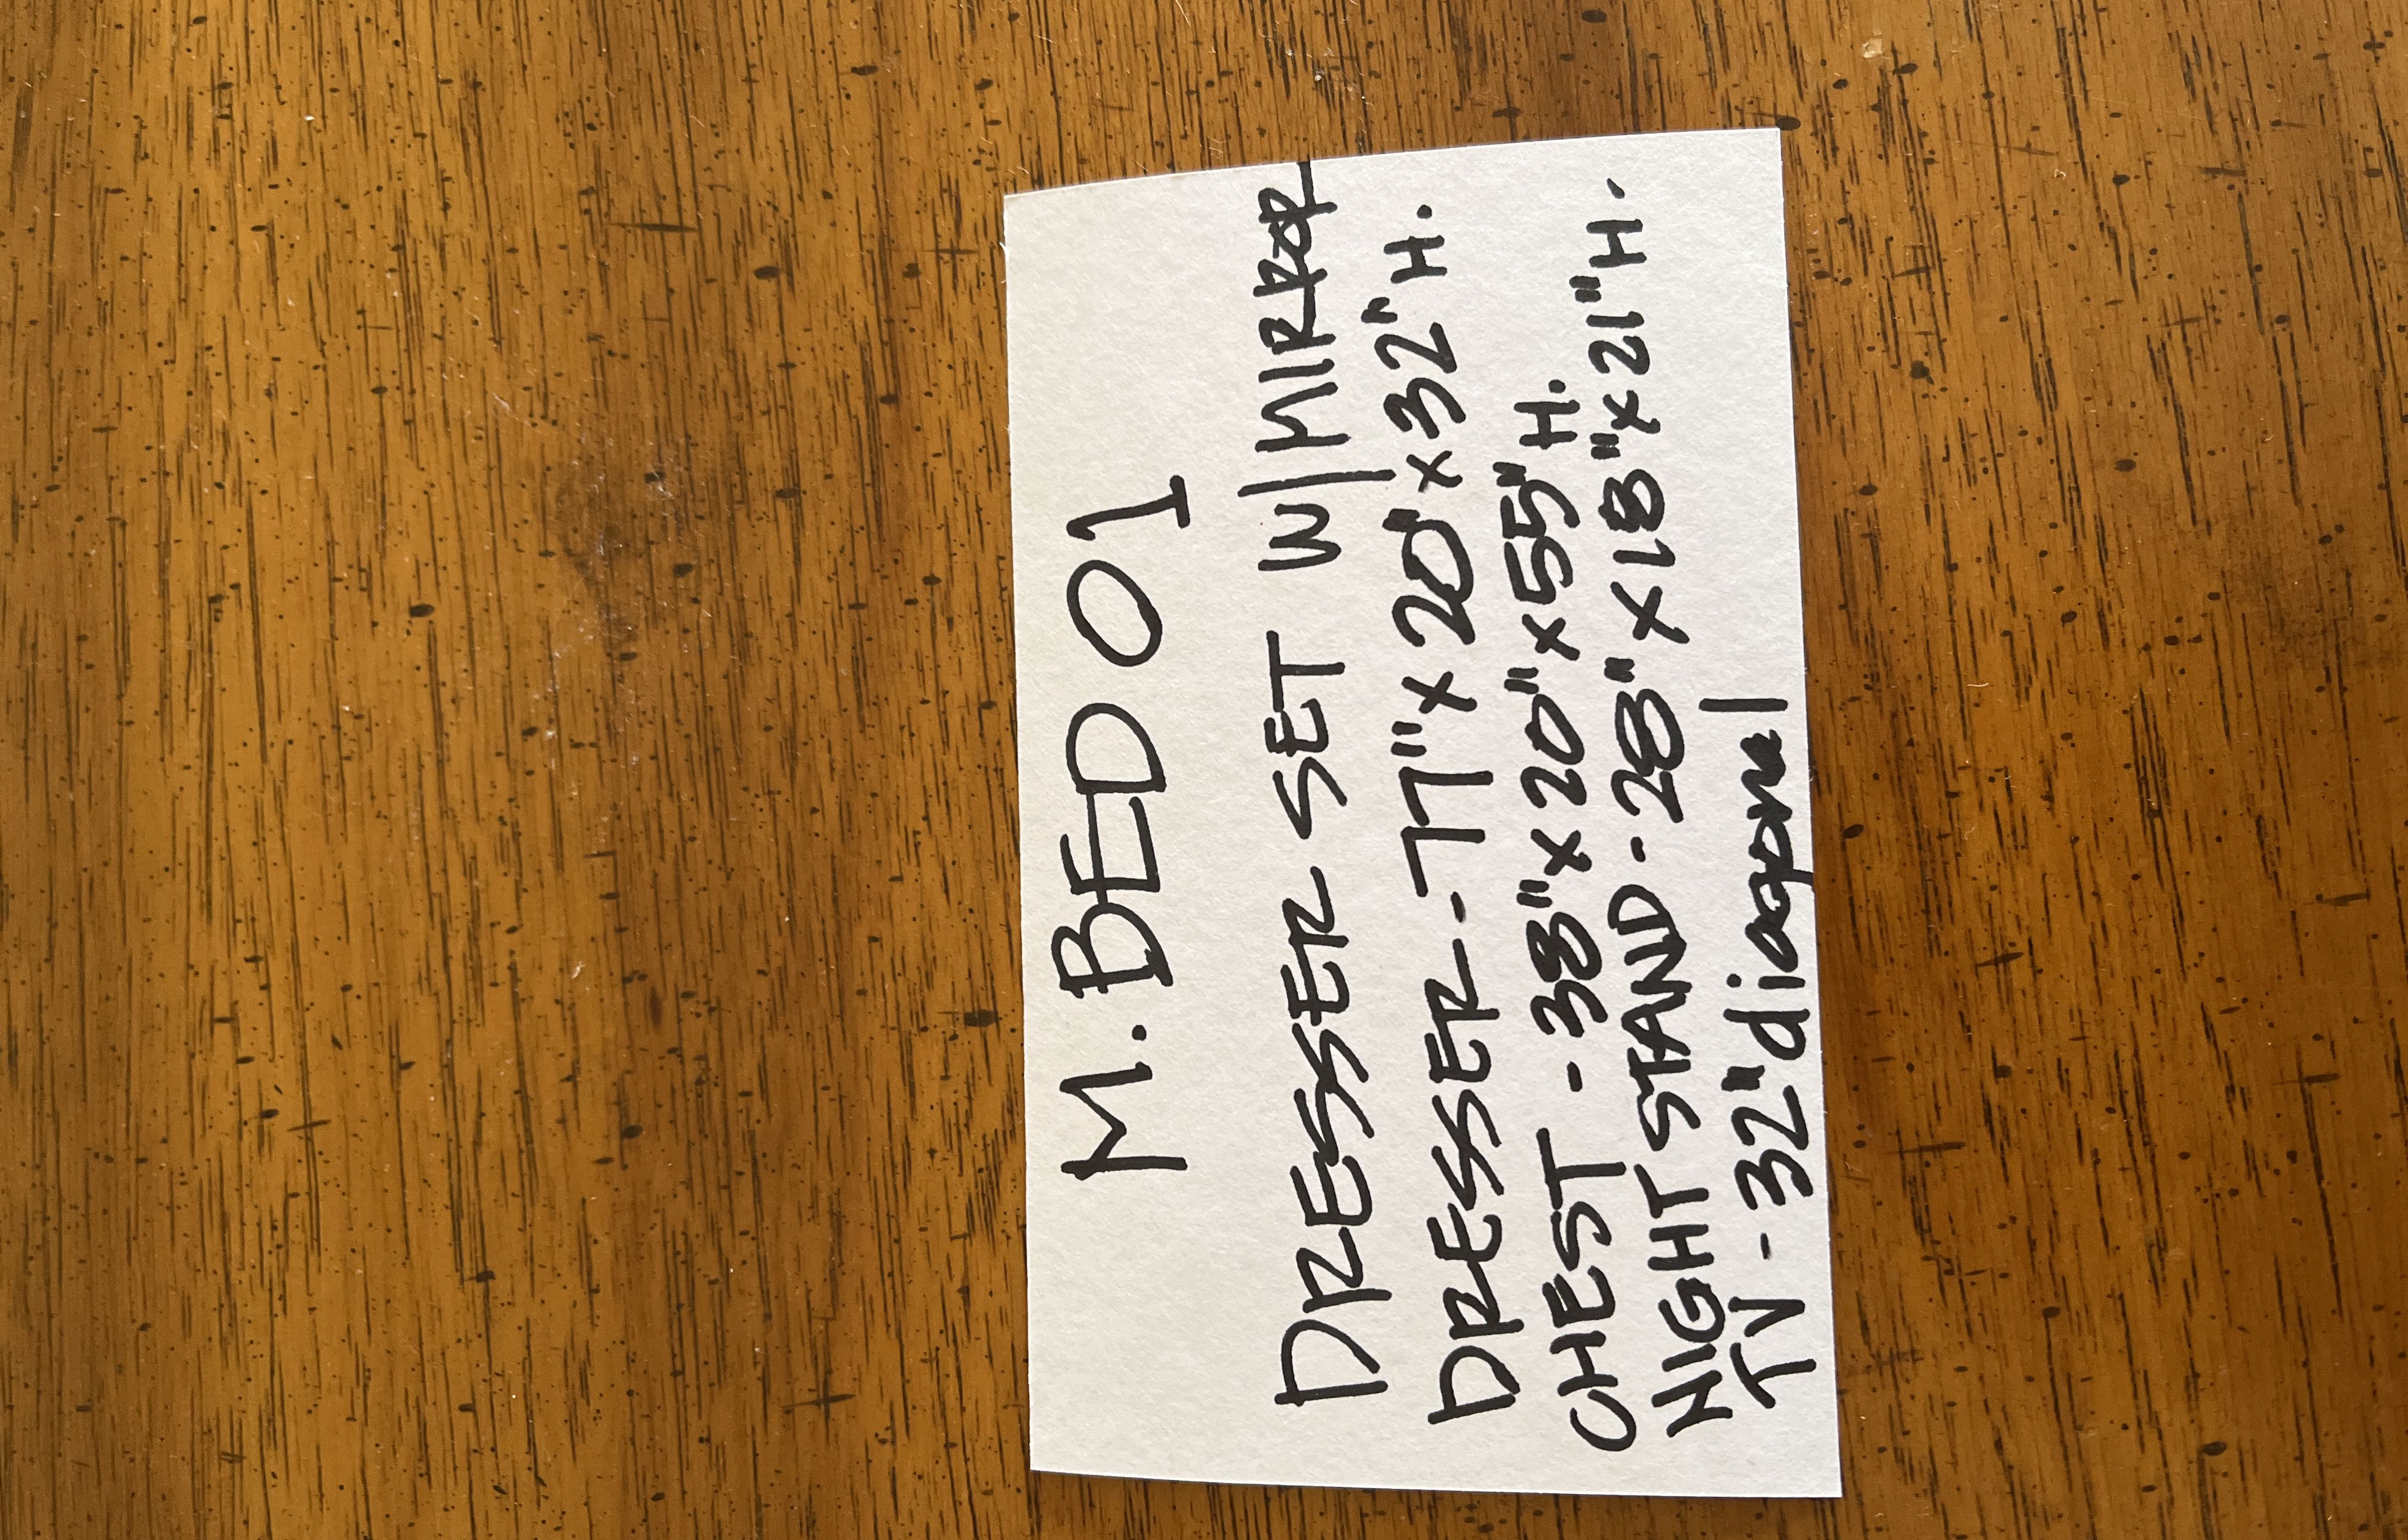 M. BED 01
DRESSER SET W/MIRROR
DRESSER - 77" x 20" x 32" H.
CHEST - 38" x 20" x 55" H.
NIGHT STAND - 28" x 18" x 21" H.
TV - 32" diagonal